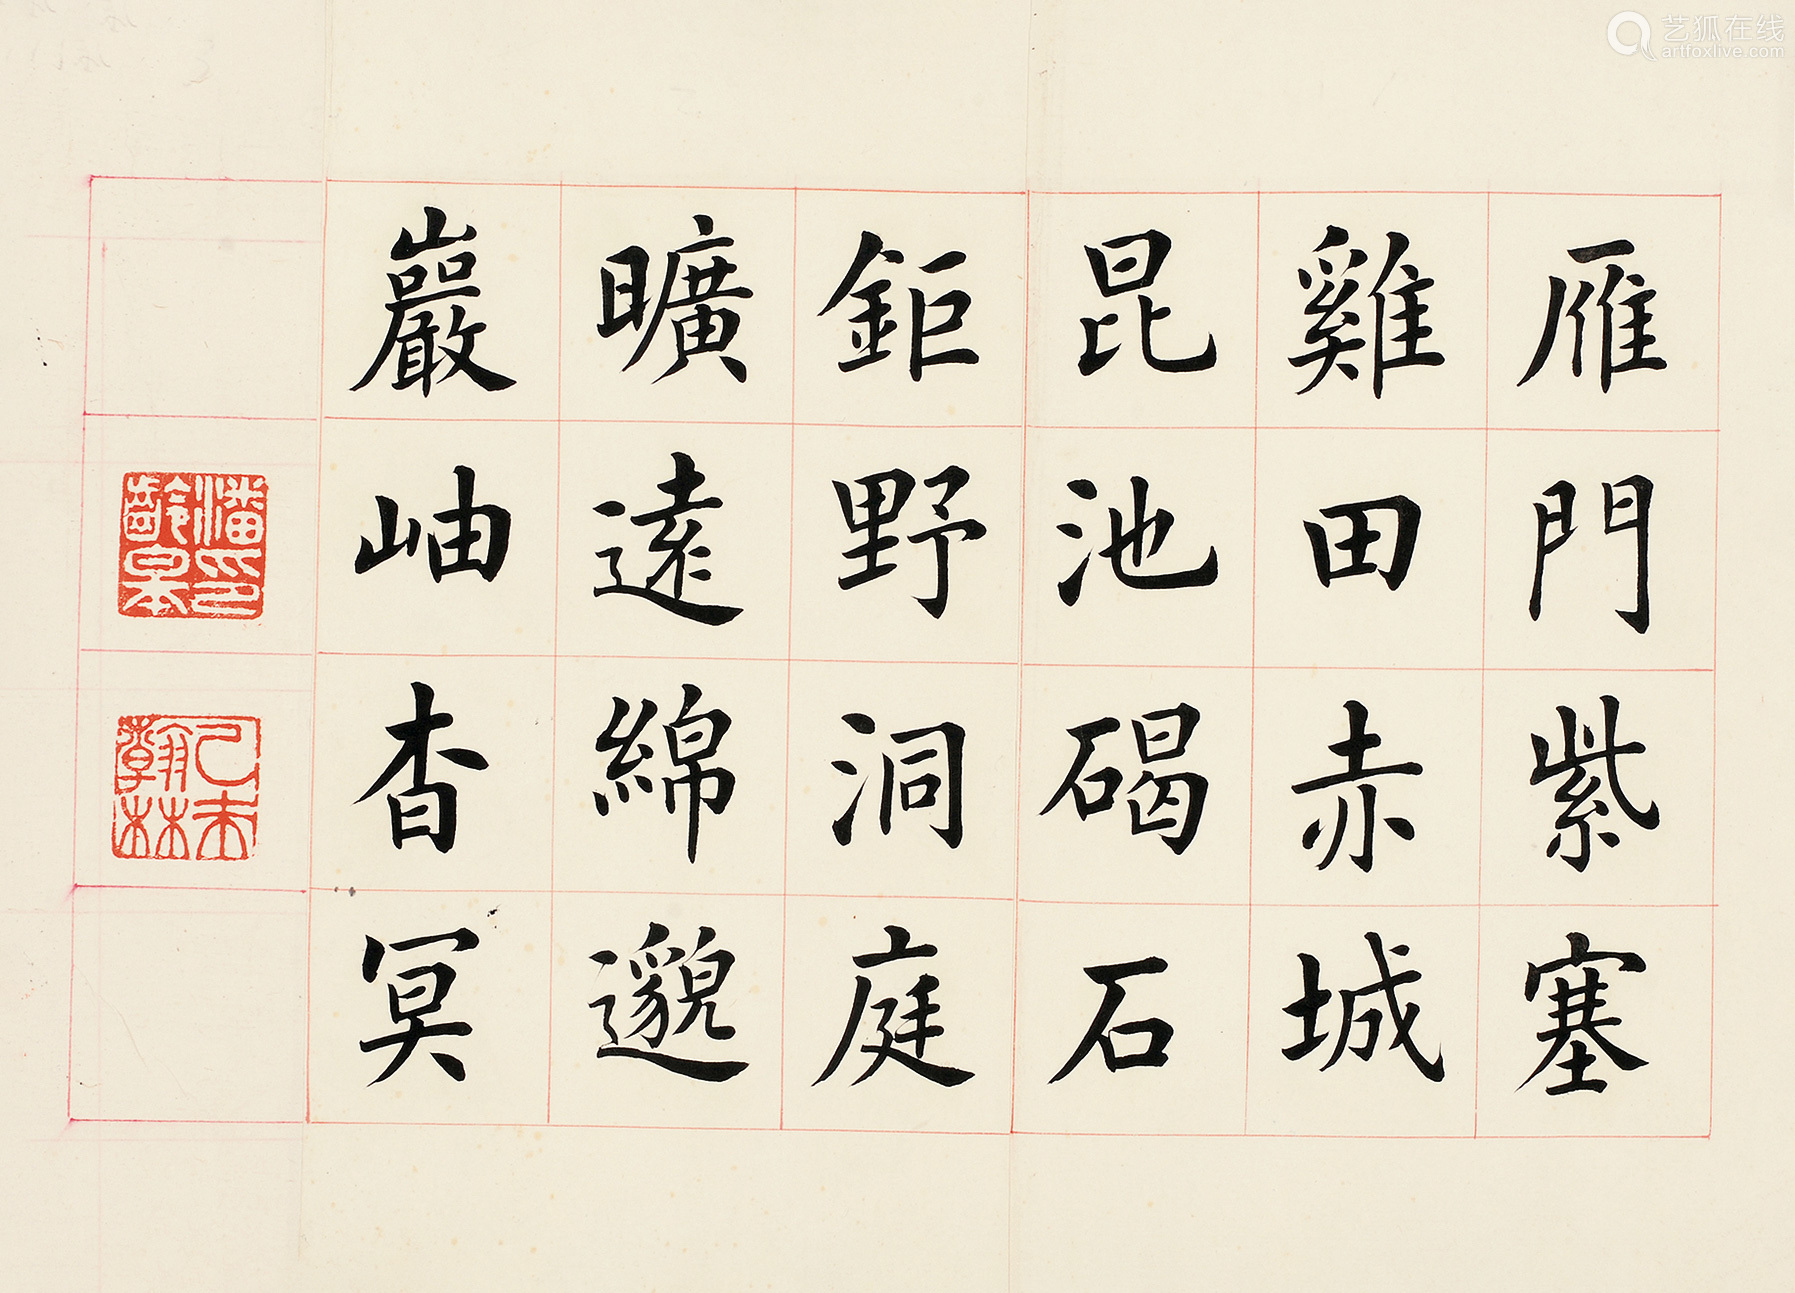 雁門紫塞
雞田赤城
昆池碣石
鉅野洞庭
曠遠綿邈
巖岫杳冥
潘印齡皋
乙未翰林
艺狐在线
artfoxlive.com